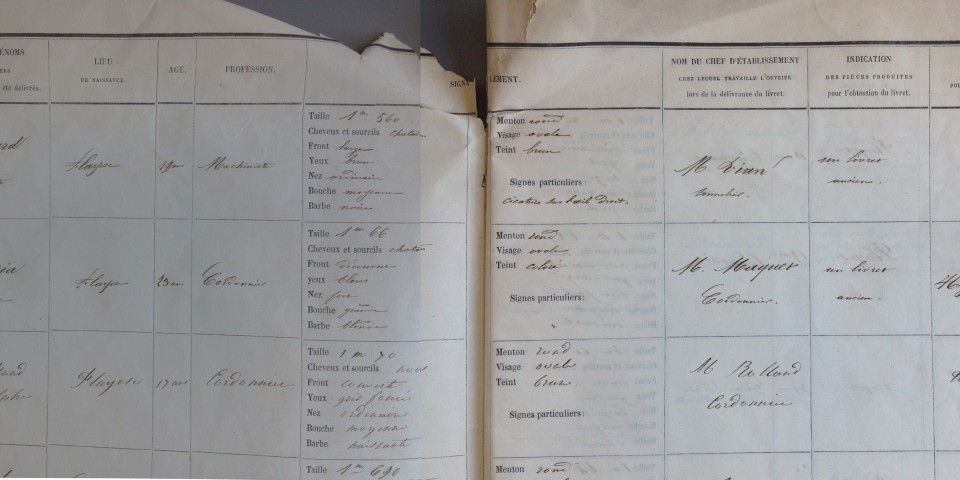 ÉNOMS
été délivrés.
LIEU
DE NAISSANCE.
AGE.
PROFESSION.
SIGNA
LEMENT.
NOM DU CHEF D'ÉTABLISSEMENT
CHEZ LEQUEL TRAVAILLE L'OUVRIER
lors de la délivrance du livret.
INDICATION
DES PIÈCES PRODUITES
pour l'obtention du livret.
Flayosc
Machiniste
Taille 1m 560
Cheveux et sourcils chatain
Front large
Yeux bruns
Nez ordinaire
Bouche moyenne
Barbe noire
Menton rond
Visage ovale
Teint brun
Signes particuliers:
cicatrice sur l'œil Droit.
M.
un livret
ancien.
Flayosc
23 ans
Cordonnier
Taille 1m 66
Cheveux et sourcils chatain
Front
yeux bleus
Nez
Bouche grande
Barbe
Menton rond
Visage ovale
Teint coloré
Signes particuliers:
"
M. Maquet
Cordonnier.
un livret
ancien.
Flayosc
17 ans
Cordonnier
Taille 1 m 70
Cheveux et sourcils
Front couvert
Yeux gris foncé
Nez ordinaire
Bouche moyenne
Barbe naissante
Menton rond
Visage ovale
Teint brun
Signes particuliers:
M Rolland
Cordonnier
Taille 1m 690
Menton rond